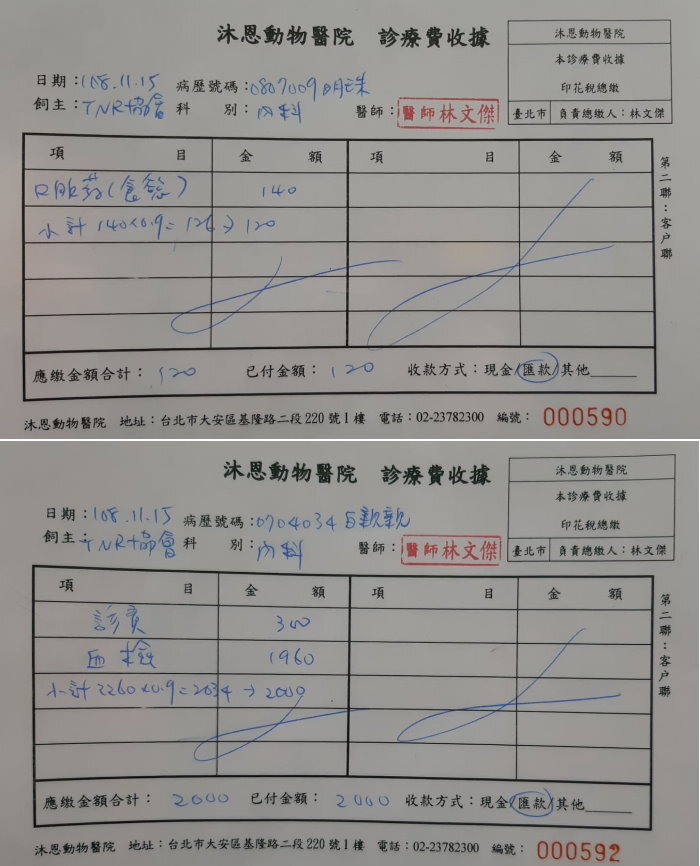 沐恩動物醫院 診療費收據
沐恩動物醫院
本診療費收據
印花稅總繳
臺北市 負責總繳人：林文傑
日期：108.11.15 病歷號碼：0807009 明珠
飼主：TNR協會 科 別：內科 醫師：醫師林文傑
項 目 金 額 項 目 金 額
口服藥(食慾) 140
小計 140×0.9=126→120
應繳金額合計：120 已付金額：120 收款方式：現金/匯款/其他
第二聯：客戶聯
沐恩動物醫院 地址：台北市大安區基隆路二段220號1樓 電話：02-23782300 編號：000590
沐恩動物醫院 診療費收據
沐恩動物醫院
本診療費收據
印花稅總繳
臺北市 負責總繳人：林文傑
日期：108.11.15 病歷號碼：0704034 親親
飼主：TNR協會 科 別：內科 醫師：醫師林文傑
項 目 金 額 項 目 金 額
診費 300
血檢 1960
小計 2260×0.9=2034→2000
應繳金額合計：2000 已付金額：2000 收款方式：現金/匯款/其他
第二聯：客戶聯
沐恩動物醫院 地址：台北市大安區基隆路二段220號1樓 電話：02-23782300 編號：000592